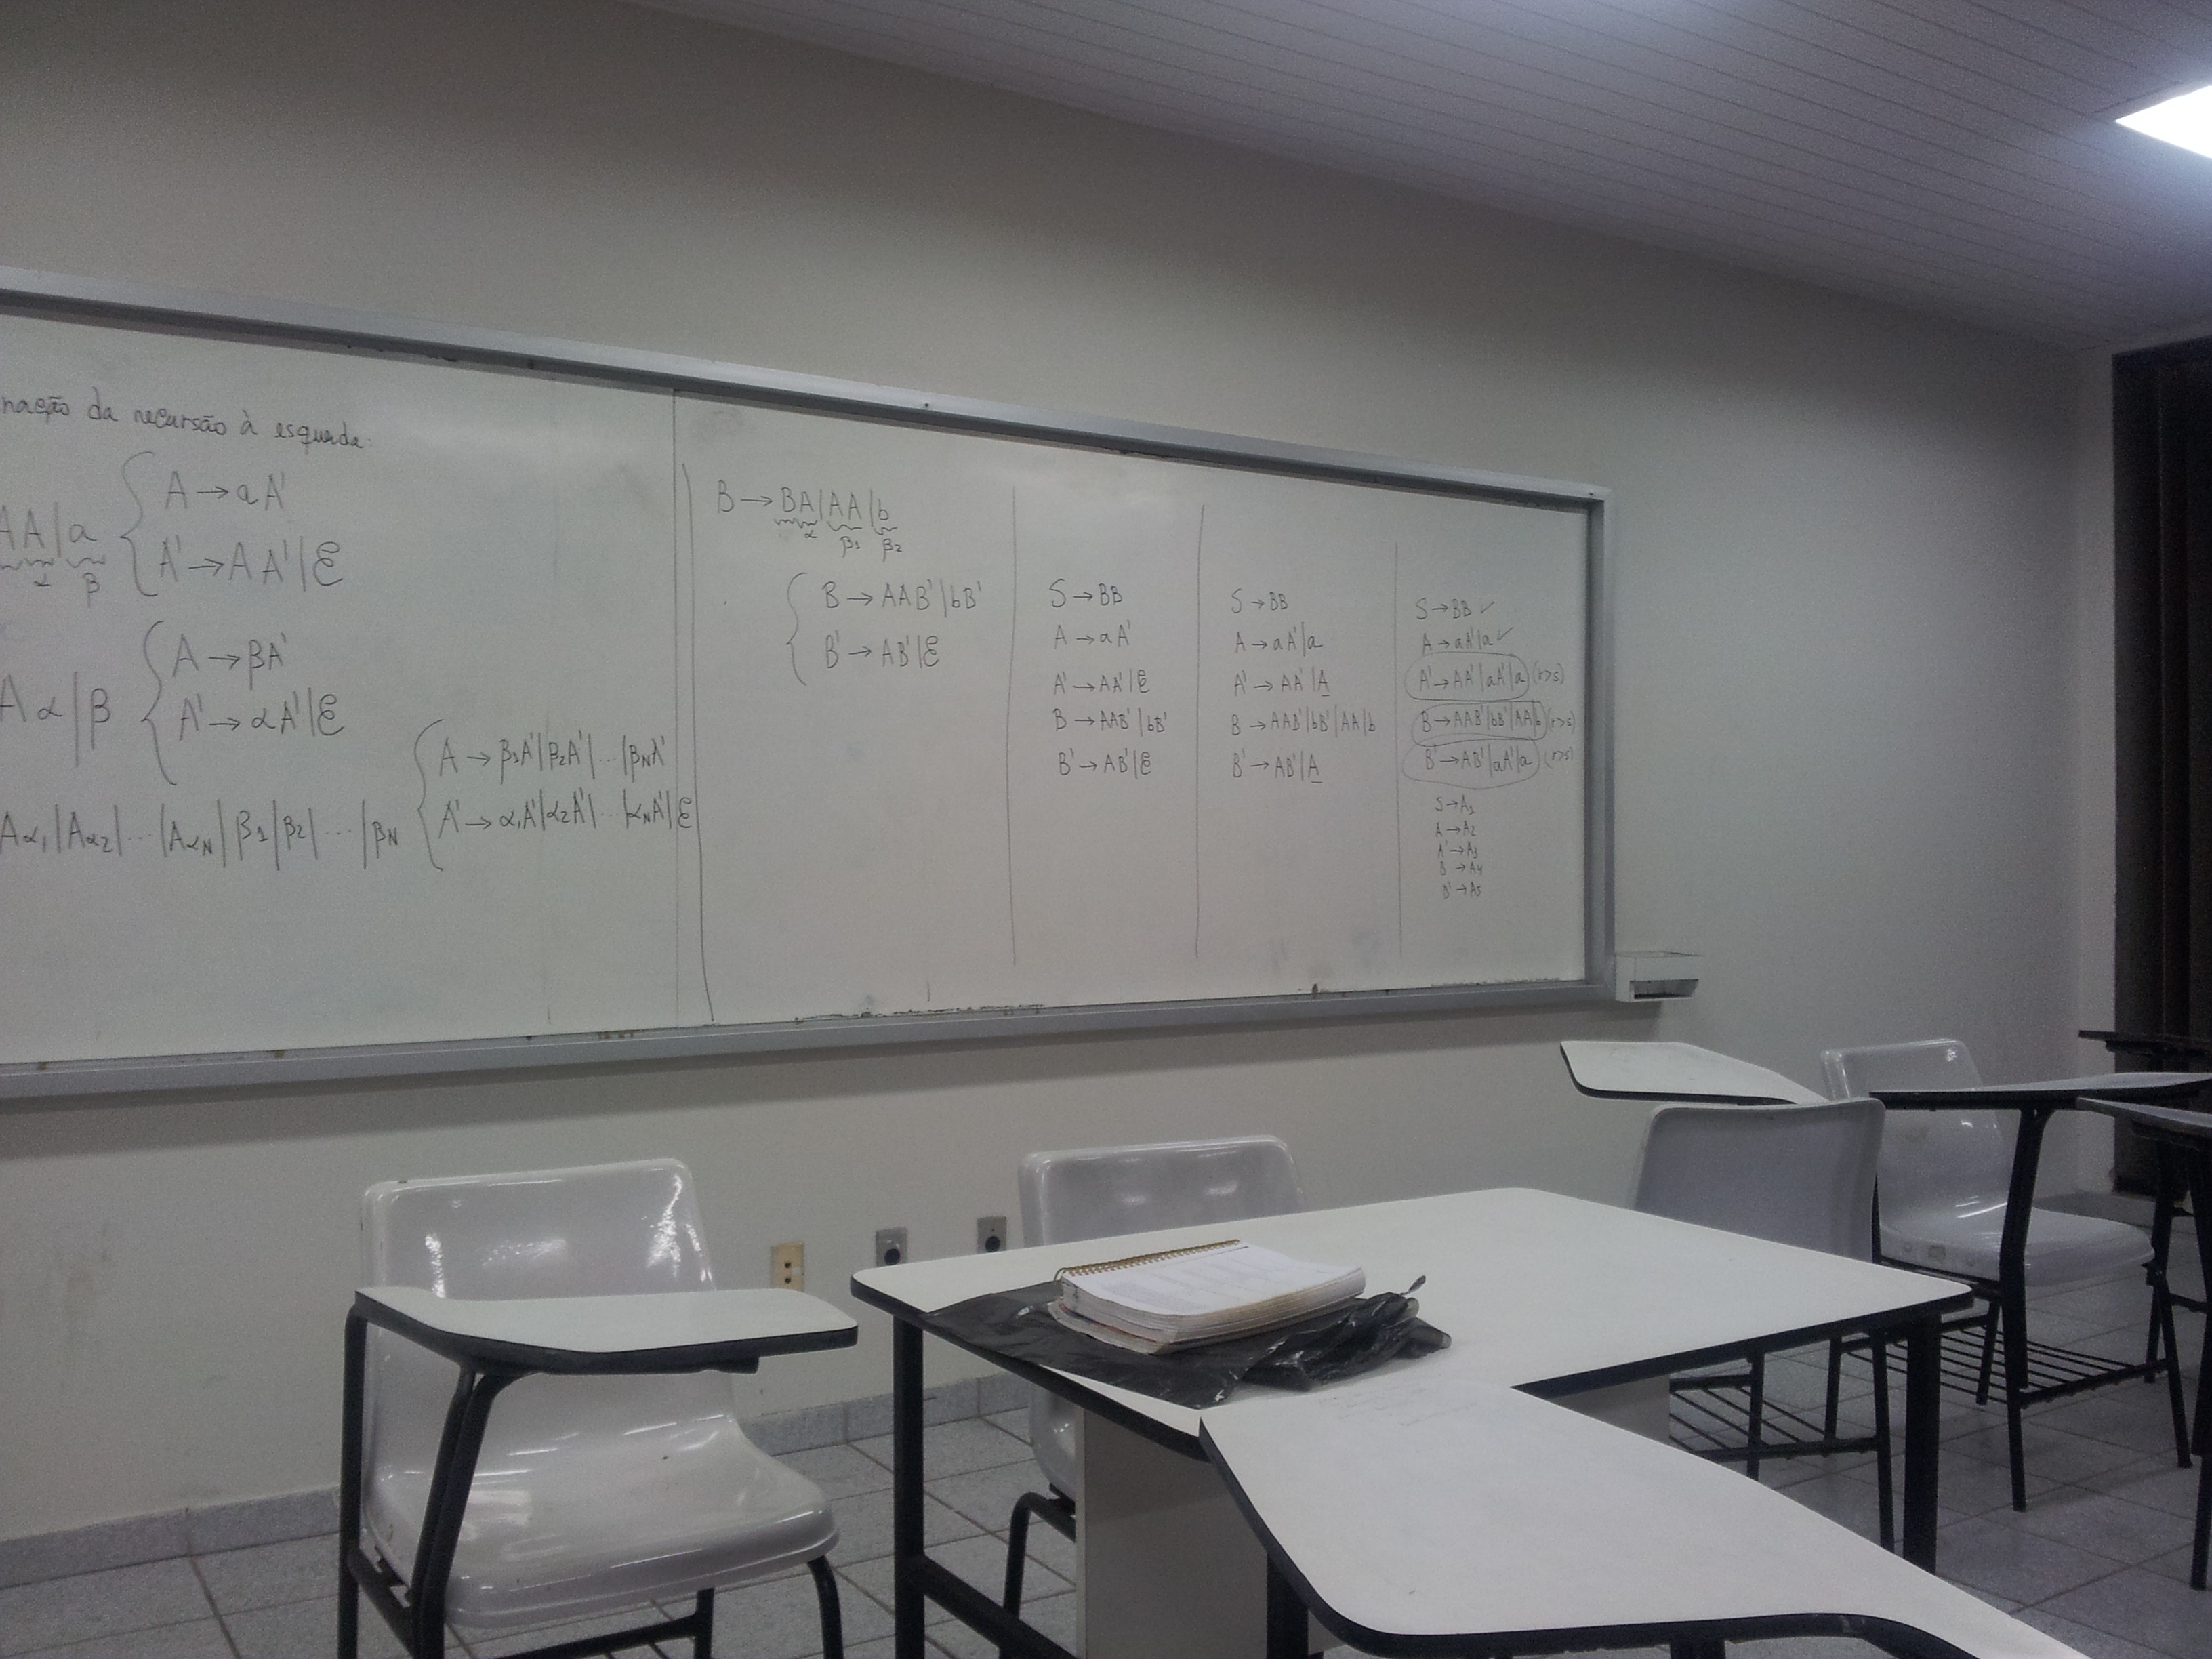 nação da recursão à esquerda
AA|a
α β
A → aA'
A' → AA'|ε
Aα|β
A → βA'
A' → αA'|ε
Aα₁|Aα₂|...|Aα_N|β₁|β₂|...|β_N
A → β₁A'|β₂A'|...|β_NA'
A' → α₁A'|α₂A'|...|α_NA'|ε
B → BA|AA|b
α β₁ β₂
B → AAB'|bB'
B' → AB'|ε
S → BB
A → aA'
A' → AA'|ε
B → AAB'|bB'
B' → AB'|ε
S → BB
A → aA'|a
A' → AA'|A
B → AAB'|bB'|AA|b
B' → AB'|A
S → BB ✓
A → aA'|a ✓
A' → AA'|aA'|a (r>s)
B → AAB'|bB'|AA|b (r>s)
B' → AB'|aA'|a (r>s)
S → A₁
A → A₂
A' → A₃
B → A₄
B' → A₅